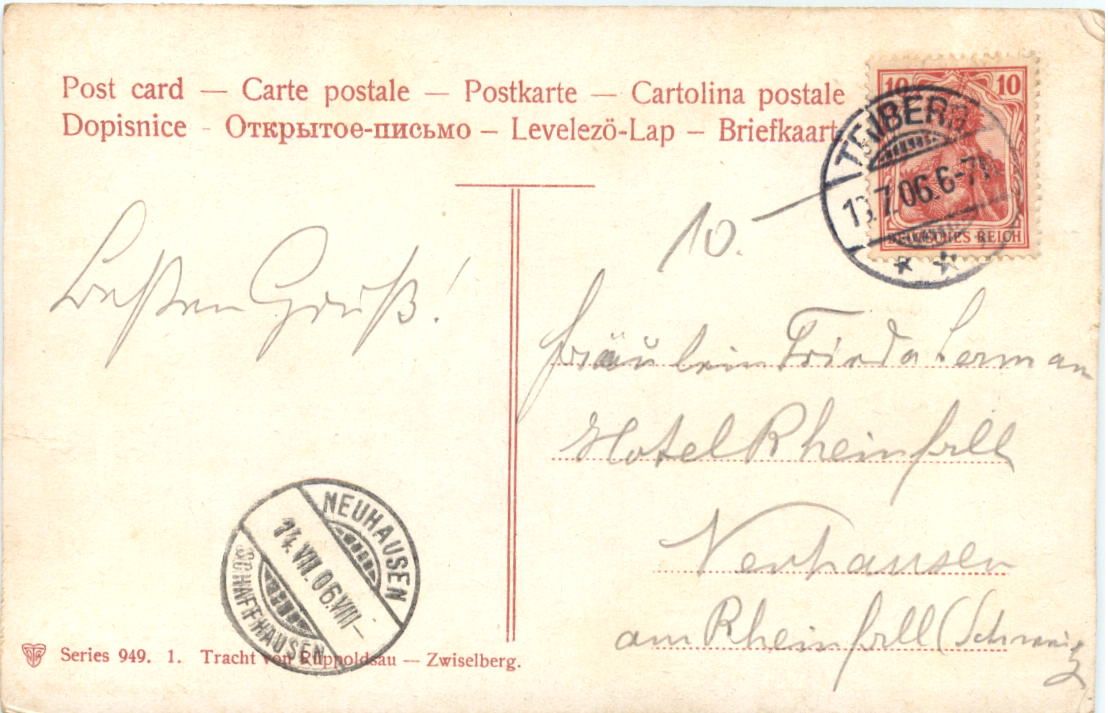 Post card — Carte postale — Postkarte — Cartolina postale
Dopisnice - Открытое-письмо – Levelező-Lap – Briefkaart
10 10
DEUTSCHES REICH
TRIBERG
13.7.06.6-7N
10. –
Besten Gruß!
Fräulein Frieda Lerman
Hotel Rheinfall
Neuhausen
am Rheinfall (Schweiz
NEUHAUSEN
14.VII.06.VIII–
SCHAFFHAUSEN
Series 949. 1. Tracht von Rippoldsau — Zwiselberg.